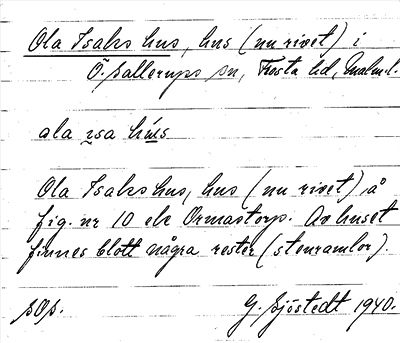 Ola Isaks hus, hus (nu rivet) i
Ö. Sallerups sn, Frosta hd, Malm.l.
ala ısa hús
Ola Isaks hus, hus (nu rivet) å
fig. nr 10 ek Ormastorp. Av huset
finnes blott några rester (stenramlor).
sOs.
G. Sjöstedt 1940.